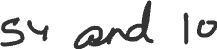 54 and 10